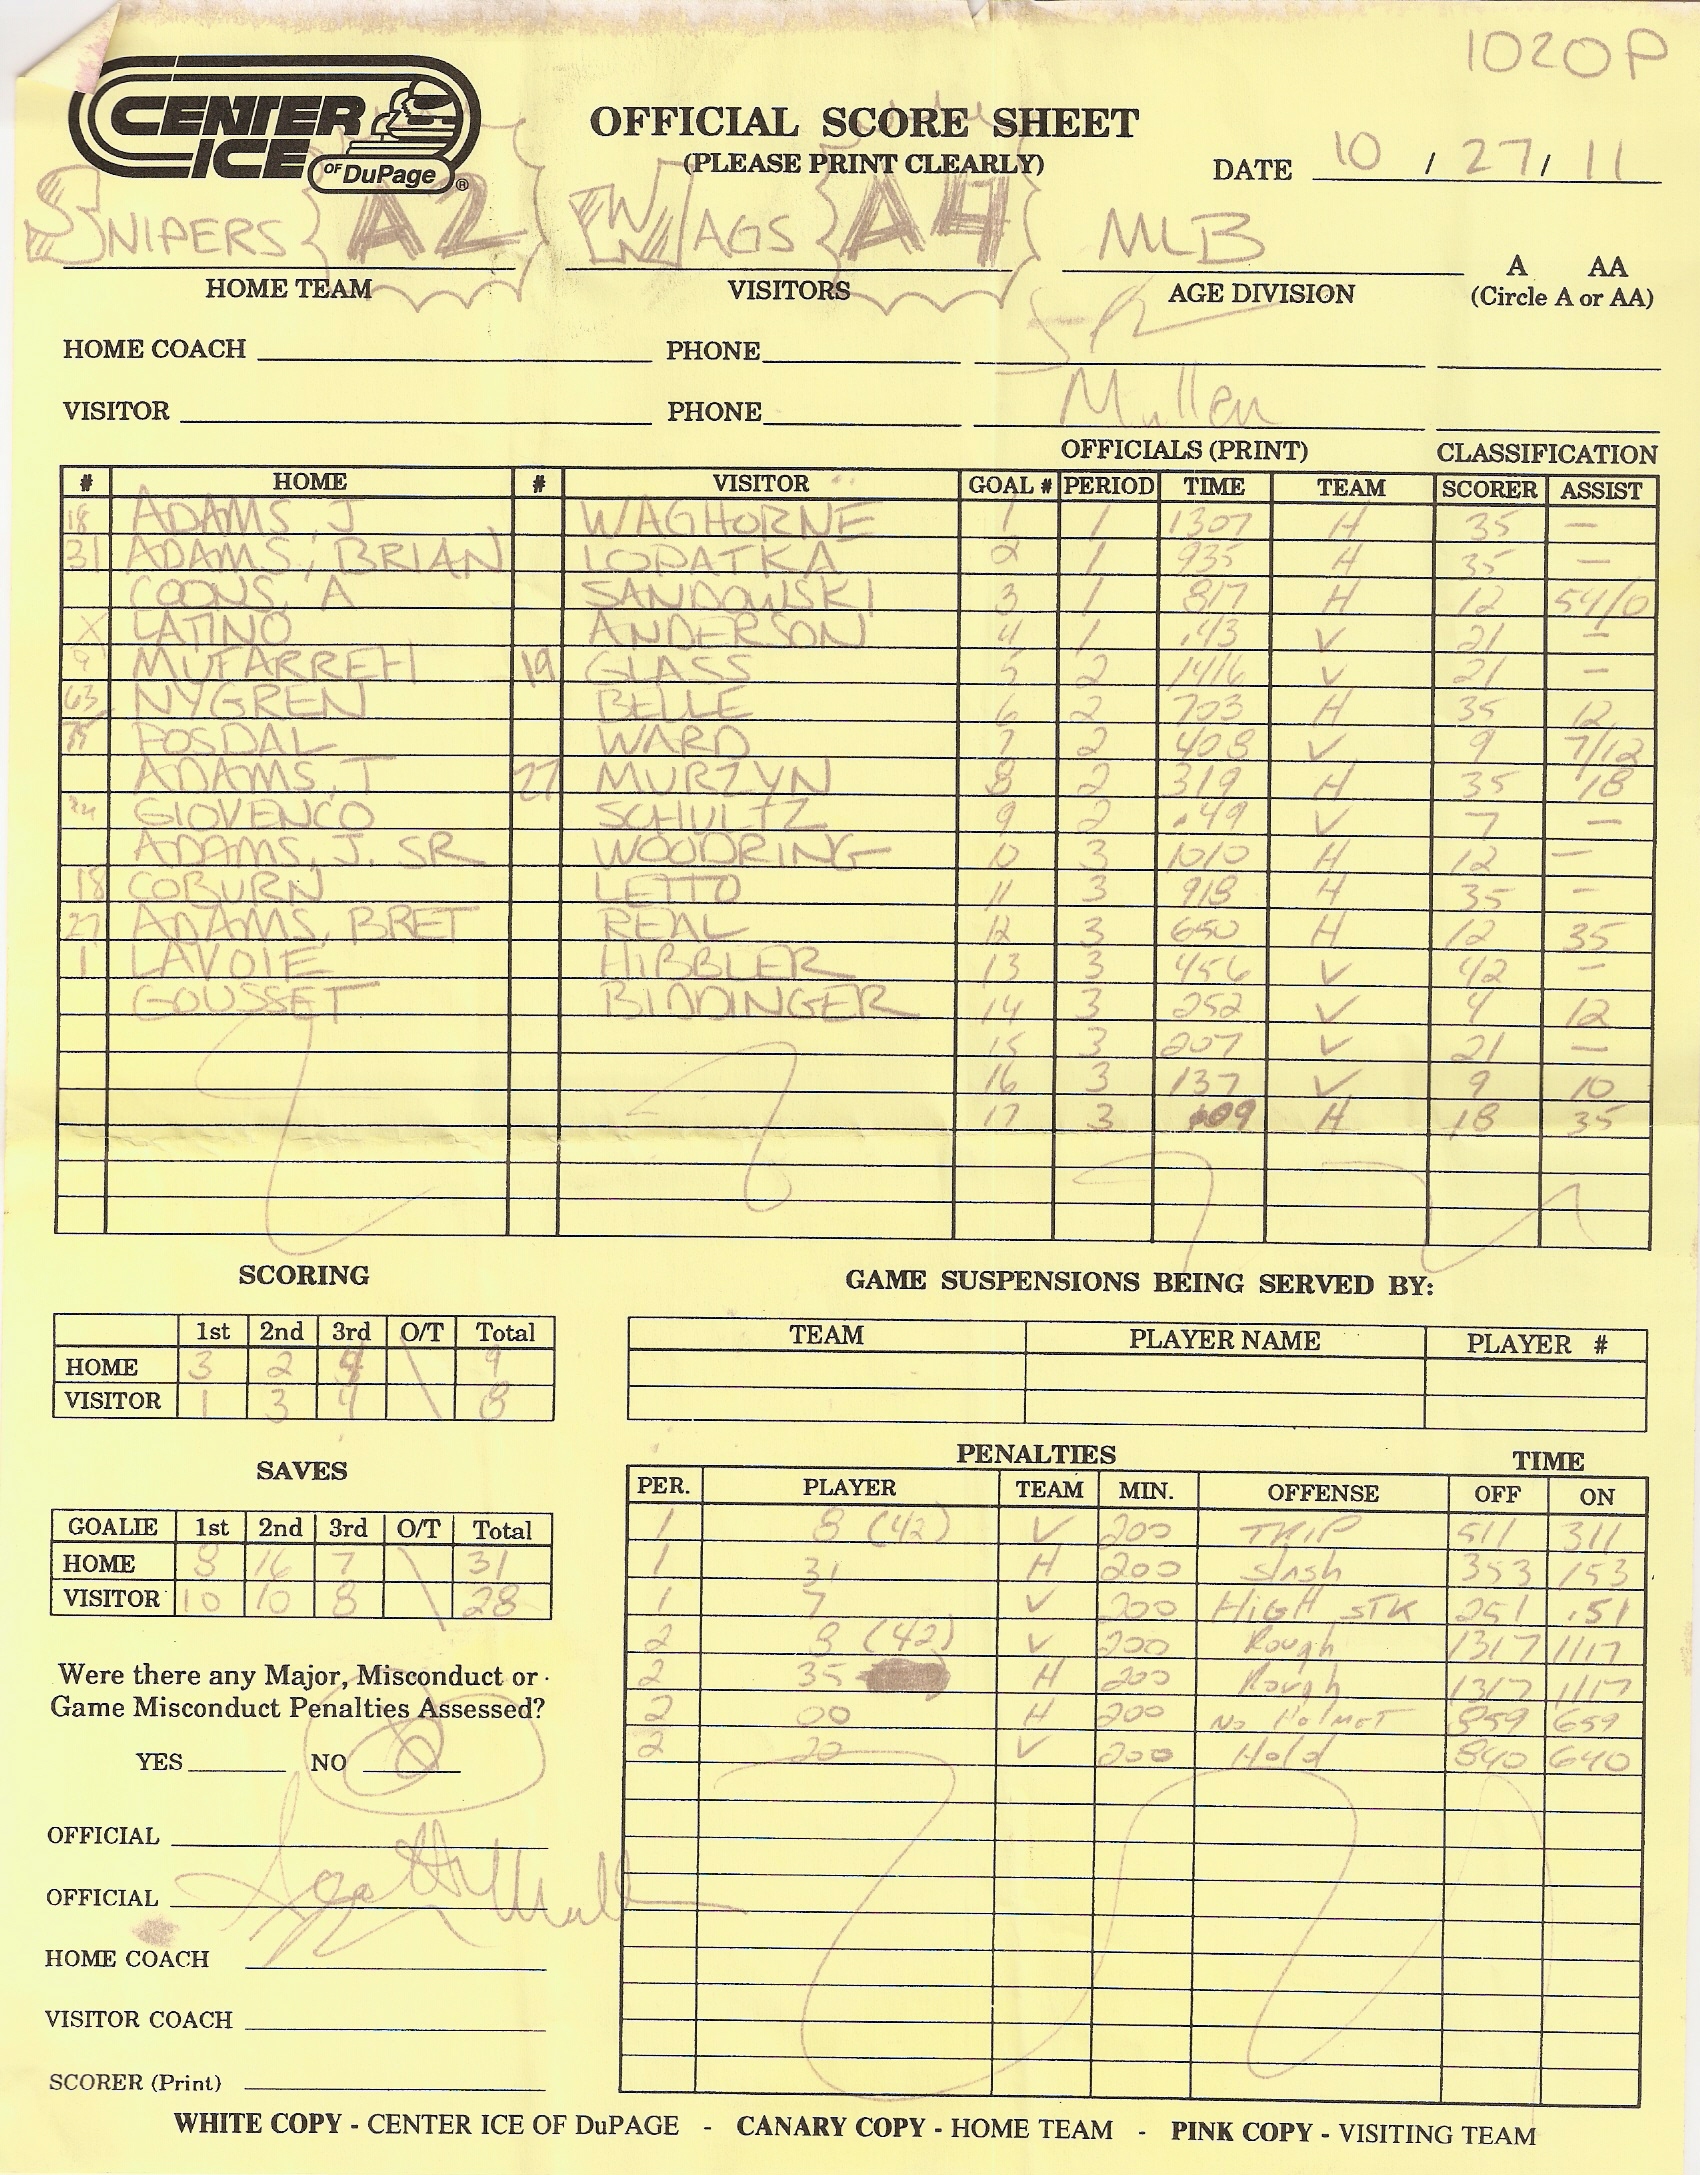 1020P
CENTER ICE OF DuPage ®
OFFICIAL SCORE SHEET
(PLEASE PRINT CLEARLY)
DATE 10 / 27 / 11
SNIPERS {A2} WAGS {A4} MLB
HOME TEAM VISITORS AGE DIVISION
A AA
(Circle A or AA)
HOME COACH PHONE
VISITOR PHONE Mullen
OFFICIALS (PRINT) CLASSIFICATION
# HOME # VISITOR GOAL # PERIOD TIME TEAM SCORER ASSIST
18 ADAMS, J WAGHORNE 1 1 1307 H 35 —
31 ADAMS, BRIAN LOPATKA 2 1 935 H 35 —
COONS, A SANDOWSKI 3 1 817 H 12 54/0
X LATINO ANDERSON 4 1 .43 V 21 —
9 MUFARREH 19 GLASS 5 2 1416 V 21 —
63 NYGREN BELLE 6 2 703 H 35 12
POSDAL WARD 7 2 408 V 9 7/12
ADAMS, T 27 MURZYN 8 2 319 H 35 18
GIOVENCO SCHULTZ 9 2 .49 V 7 —
ADAMS, J. SR WOODRING 10 3 1010 H 12 —
18 COBURN LETTO 11 3 918 H 35 —
27 ADAMS, BRET REAL 12 3 650 H 12 35
1 LAVOIE HIBBLER 13 3 456 V 42 —
GOUSSET BIDDINGER 14 3 252 V 4 12
15 3 207 V 21 —
16 3 137 V 9 10
17 3 09 H 18 35
SCORING
1st 2nd 3rd O/T Total
HOME 3 2 4 \ 9
VISITOR 1 3 4 \ 8
GAME SUSPENSIONS BEING SERVED BY:
TEAM PLAYER NAME PLAYER #
SAVES
GOALIE 1st 2nd 3rd O/T Total
HOME 8 16 7 \ 31
VISITOR 10 10 8 \ 28
PENALTIES TIME
PER. PLAYER TEAM MIN. OFFENSE OFF ON
1 8 (42) V 200 TRIP 511 311
1 31 H 200 Slash 353 153
1 7 V 200 HIGH STK 251 .51
2 8 (42) V 200 Rough 1317 1117
2 35 H 200 Rough 1317 1117
2 00 H 200 No Helmet 859 659
2 20 V 200 Hold 840 640
Were there any Major, Misconduct or
Game Misconduct Penalties Assessed?
YES NO
OFFICIAL
OFFICIAL
HOME COACH
VISITOR COACH
SCORER (Print)
WHITE COPY - CENTER ICE OF DuPAGE - CANARY COPY - HOME TEAM - PINK COPY - VISITING TEAM